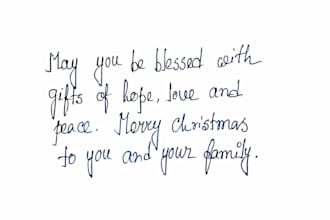 May you be blessed with
gifts of hope, love and
peace. Merry Christmas
to you and your family.